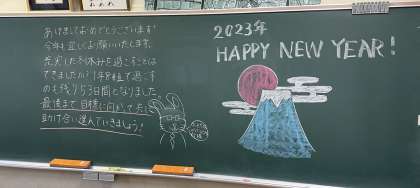 あけましておめでとうございます
今年も宜しくお願いいたします。
充実した冬休みを過ごすことは
できましたか？1年8組で過ごす
のも残り53日間となりました。
最後まで目標に向かって
助け合い進んでいきましょう！
2023年
HAPPY NEW YEAR!